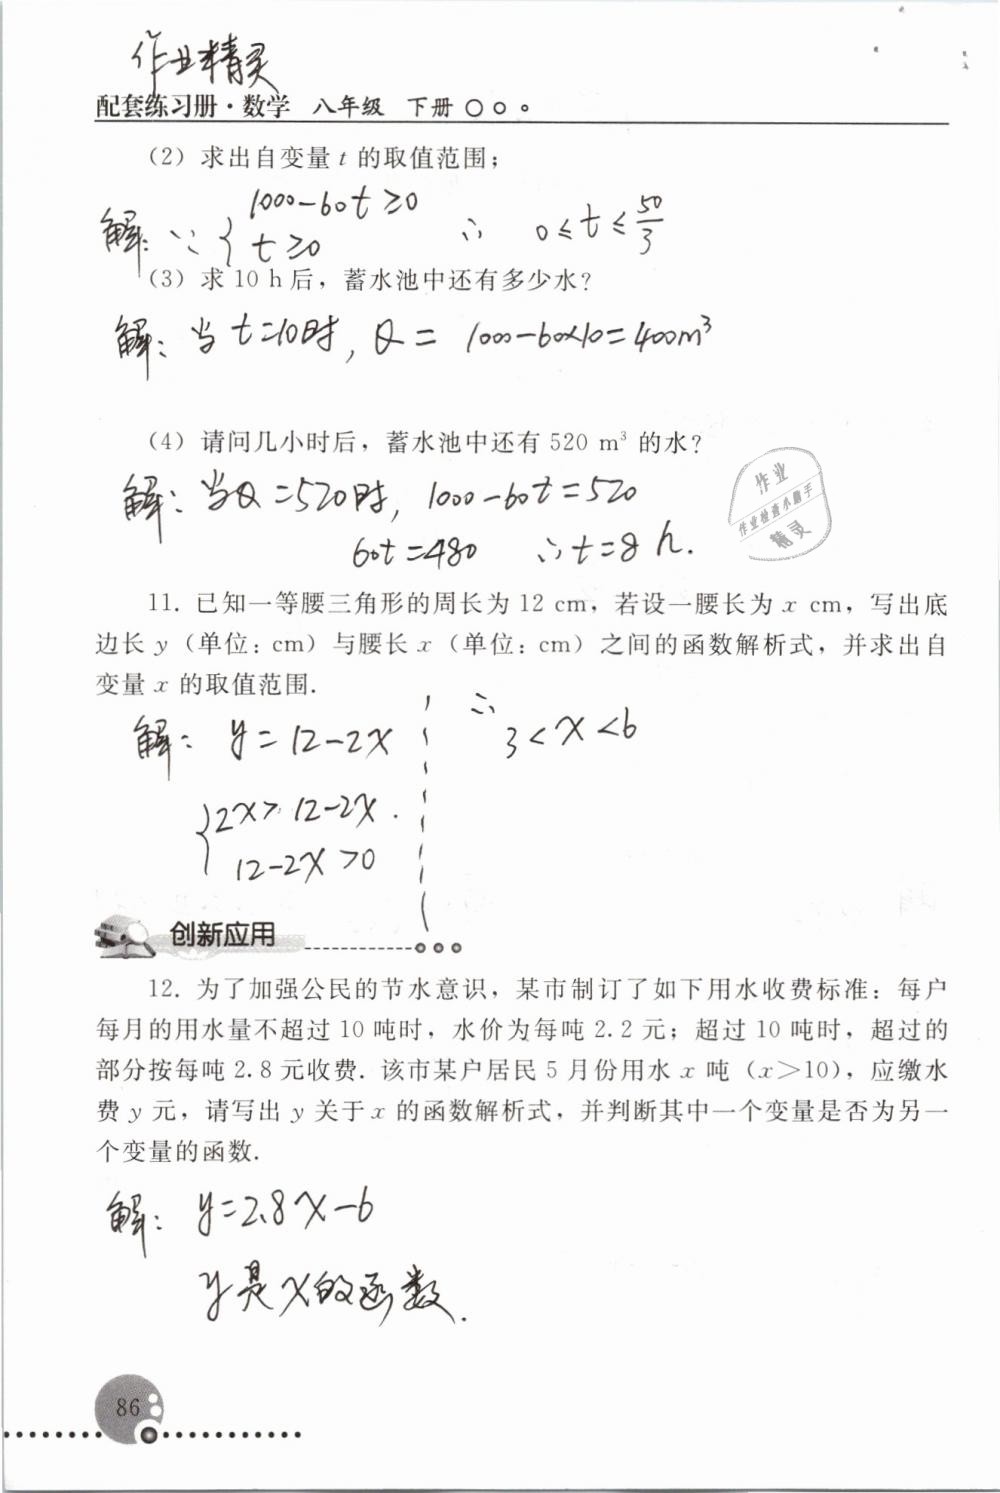 作业精灵
配套练习册·数学 八年级 下册
(2) 求出自变量 t 的取值范围;
解: ∵ { 1000-60t≥0
t≥0 ∴ 0≤t≤50/3
(3) 求 10 h 后, 蓄水池中还有多少水?
解: 当 t=10时, Q = 1000-60×10=400m³
(4) 请问几小时后, 蓄水池中还有 520 m³ 的水?
解: 当Q=520时, 1000-60t=520
60t=480 ∴t=8 h.
作业
作业检查小助手
精灵
11. 已知一等腰三角形的周长为 12 cm, 若设一腰长为 x cm, 写出底
边长 y (单位: cm) 与腰长 x (单位: cm) 之间的函数解析式, 并求出自
变量 x 的取值范围.
解: y=12-2x
{ 2x>12-2x.
12-2x>0
∴ 3<x<6
创新应用
12. 为了加强公民的节水意识, 某市制订了如下用水收费标准: 每户
每月的用水量不超过 10 吨时, 水价为每吨 2.2 元; 超过 10 吨时, 超过的
部分按每吨 2.8 元收费. 该市某户居民 5 月份用水 x 吨 (x>10), 应缴水
费 y 元, 请写出 y 关于 x 的函数解析式, 并判断其中一个变量是否为另一
个变量的函数.
解: y=2.8x-6
y是x的函数.
86